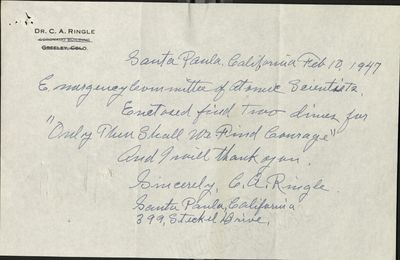 DR. C. A. RINGLE
CORONADO BUILDING
GREELEY, COLO.
Santa Paula, California Feb 10, 1947
Emergency Committee of Atomic Scientists.
Enclosed find two dimes for
"Only Then Shall We Find Courage"
And I will thank you.
Sincerely, C. A. Ringle.
Santa Paula, California
399, Steckel Drive.